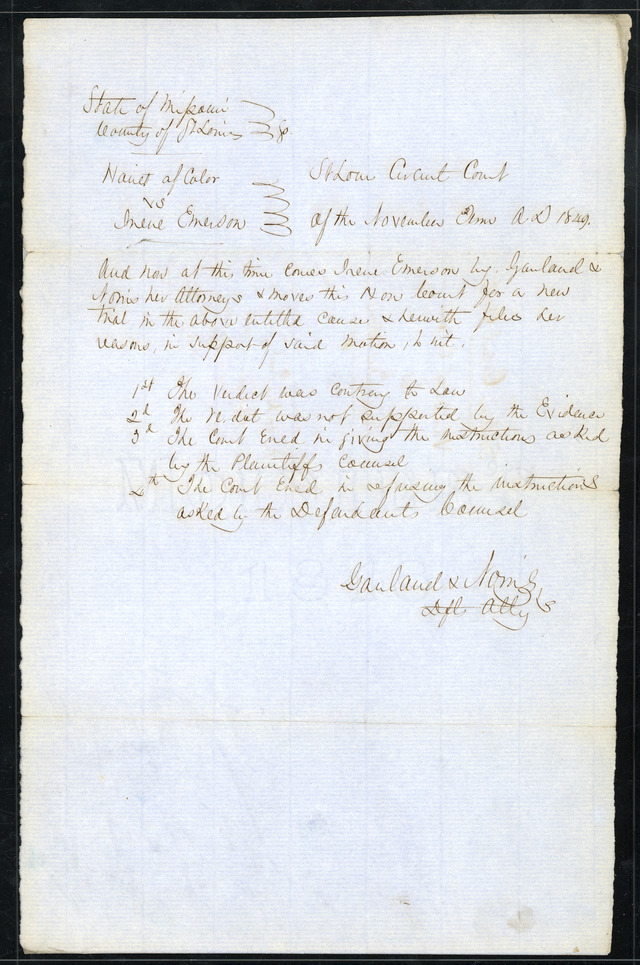 State of Missouri
County of St Louis } S.
Harriet of Color St Louis Circuit Court
vs
Irene Emerson of the November Term A D 1849.
And now at this time comes Irene Emerson by Garland &
Norris her Attorneys & moves this Hon Court for a new
trial in the above entitled cause & herewith files her
reasons, in support of said motion, to wit.
1st The Verdict was contrary to Law
2d The Verdict was not supported by the Evidence
3d The Court Erred in giving the instructions asked
by the Plaintiffs Counsel
4th The Court Erred in refusing the instructions
asked by the Defendants Counsel
Garland & Norris
Dfts Attys